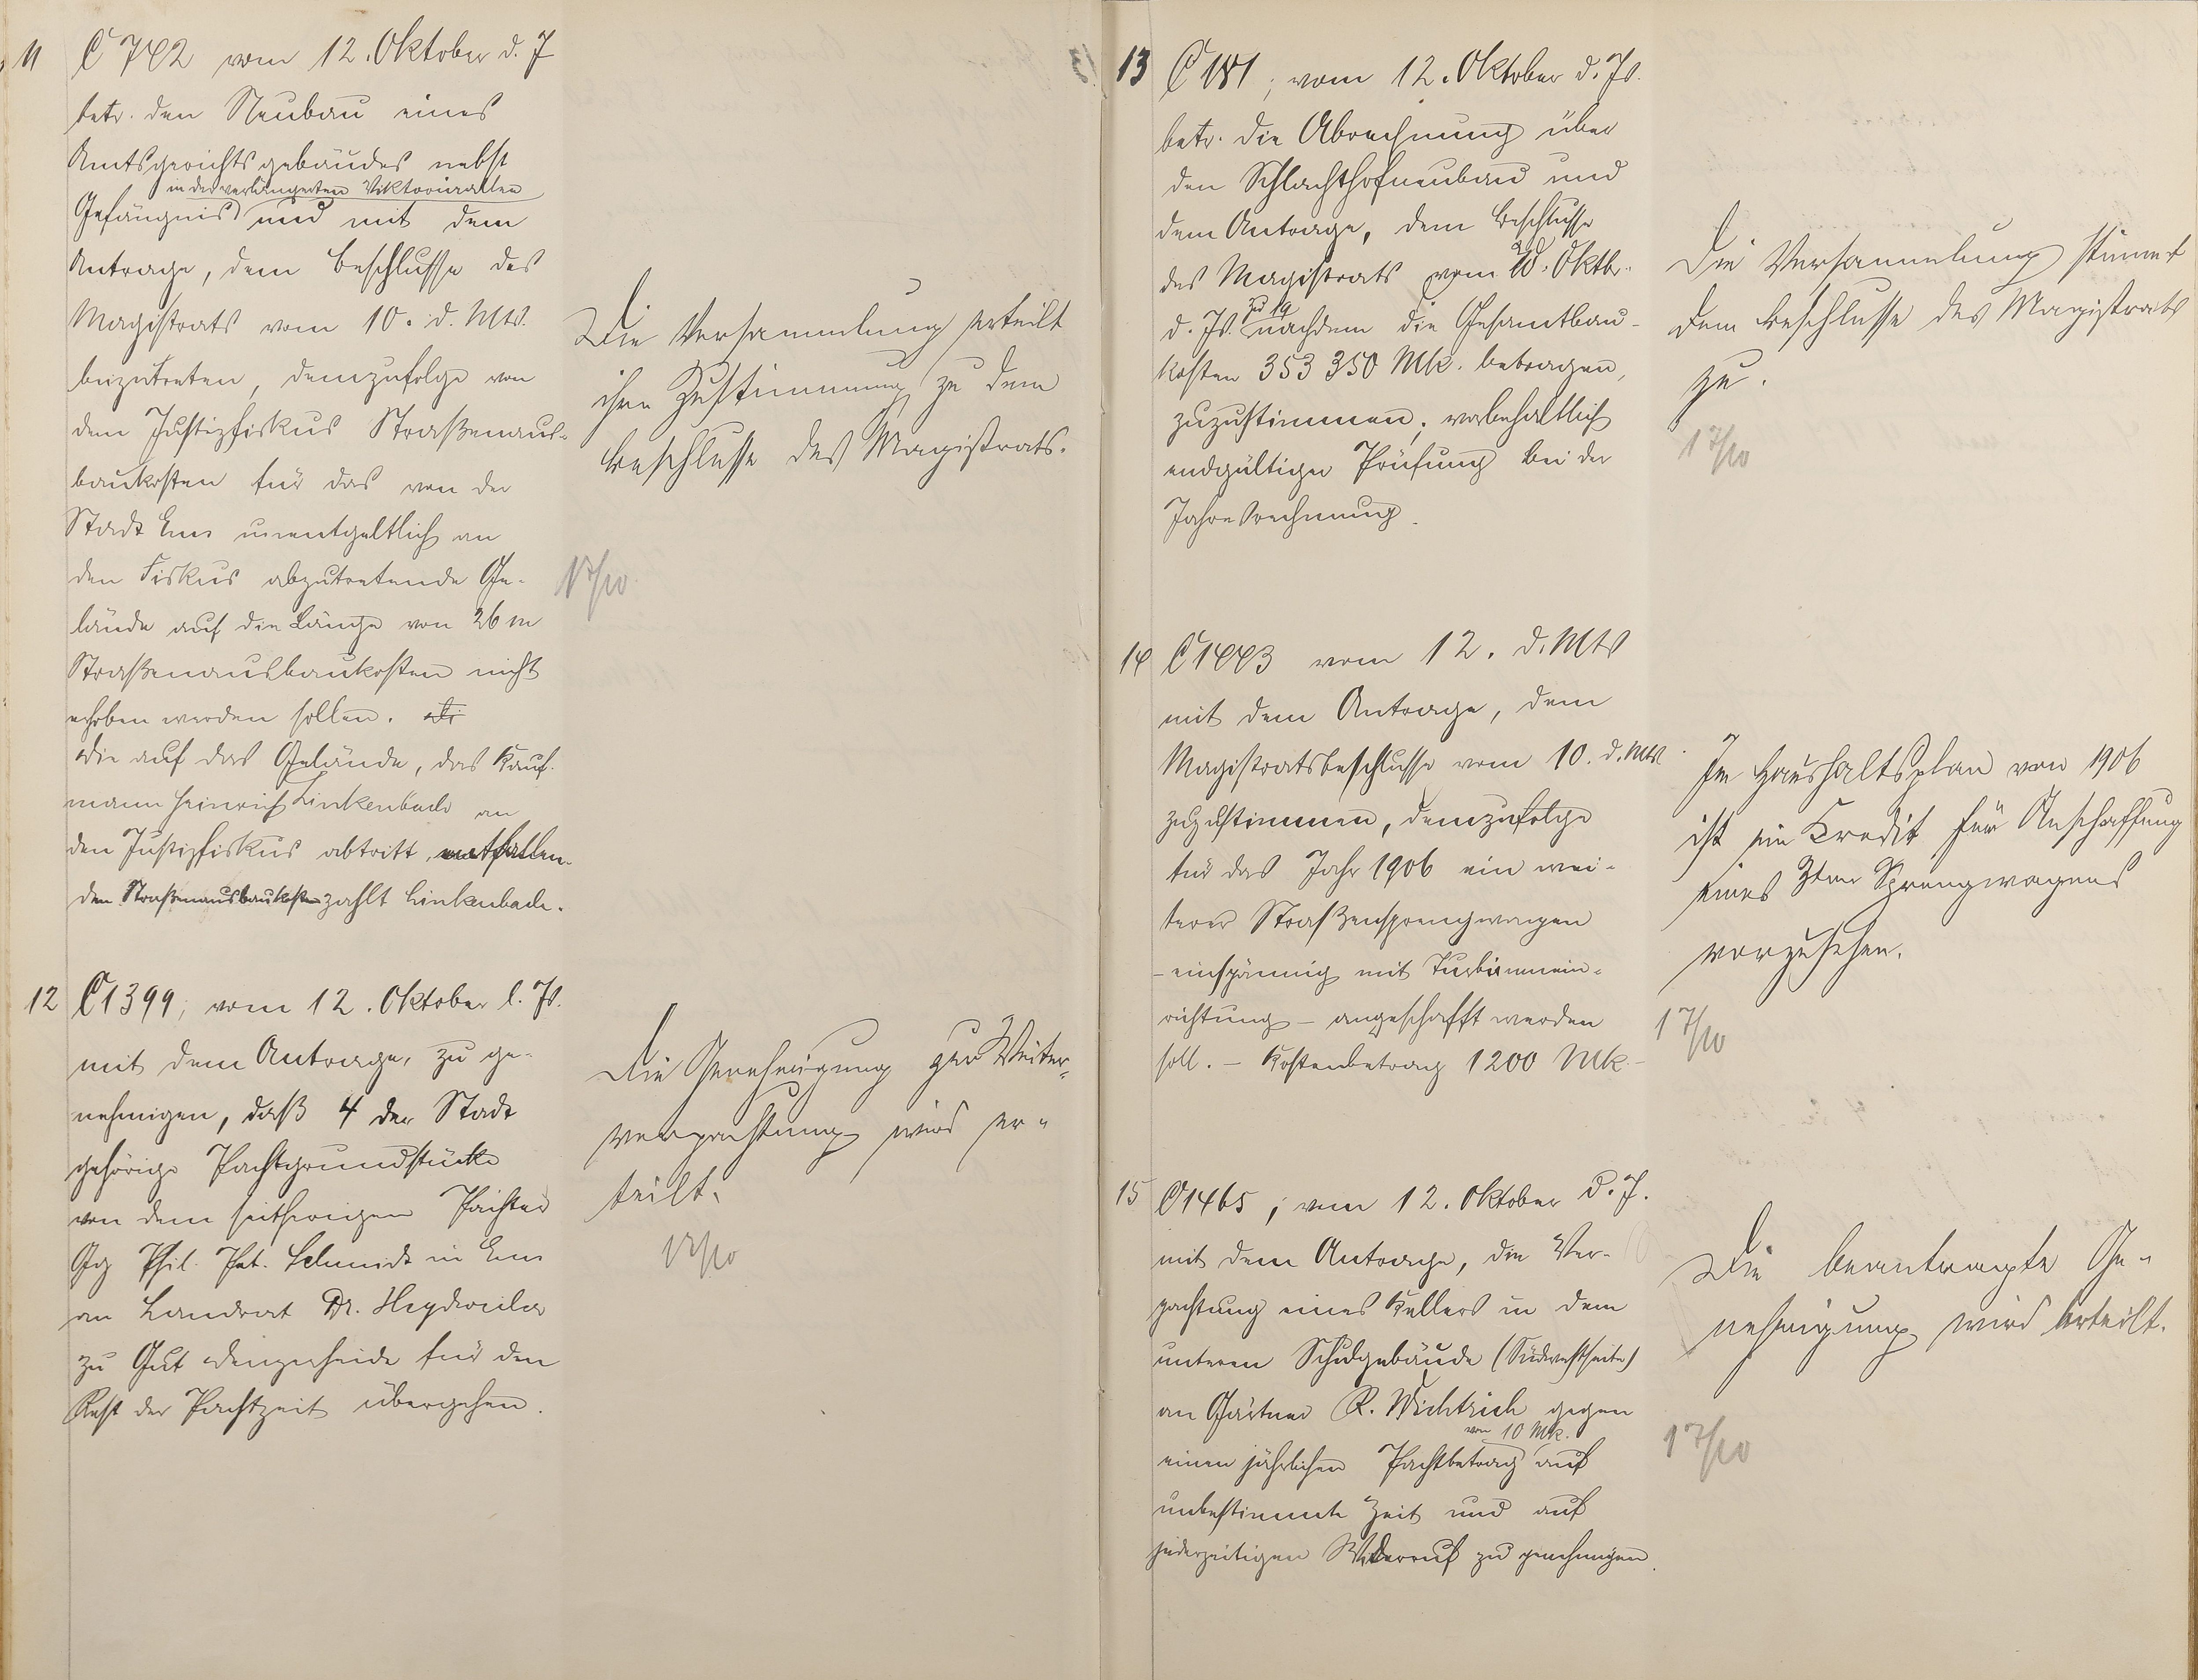 11 C 742 vom 12. Oktober d. J
betr. den Neubau eines
Amtsgerichtsgebäudes nebst
in der verlängerten Viktoriaallee
Gefängnis und mit dem
Antrage, dem Beschlusse des
Magistrats vom 10. d. Mts.
beizutreten, demzufolge von
dem Justizfiskus Straßenaus-
baukosten für das von der
Stadt Ems unentgeltlich an
den Fiskus abzutretende Ge-
lände auf die Länge von 26 m
Straßenausbaukosten nicht
erhoben werden sollen.
Die auf das Gelände, das Kauf-
mann Heinrich Linkenbach an
den Justizfiskus abtritt, entfallen-
den Straßenausbaukosten zahlt Linkenbach.
Die Versammlung erteilt
ihre Zustimmung zu dem
Beschlusse des Magistrats.
17/10
12 C 1399, vom 12. Oktober l. Js.
mit dem Antrage, zu ge-
nehmigen, daß 4 der Stadt
gehörige Pachtgrundstücke
von dem seitherigen Pächter
Gg Phil. Pet. Schmidt in Ems
an Landrat Dr. Heydweiler
zu Gut Denzerheide für den
Rest der Pachtzeit übergehen.
Die Genehmigung zur Weiter-
verpachtung wird er-
teilt.
17/10
13 C 181, vom 12. Oktober d. Js.
betr. die Abrechnung über
den Schlachthofneubau und
dem Antrage, dem Beschlusse
des Magistrats vom 10. Oktb.
d. Js. nachdem die Gesamtbau-
kosten 353 350 Mk. betragen,
zuzustimmen, vorbehaltlich
endgültiger Prüfung bei der
Jahresrechnung.
Die Versammlung stimmt
dem Beschlusse des Magistrats
zu.
17/10
14 C 1443 vom 12. d. Mts
mit dem Antrage, dem
Magistratsbeschlusse vom 10. d. Mts.
zuzustimmen, demzufolge
für das Jahr 1906 ein wei-
terer Straßensprengwagen
- einspännig mit Turbinenein-
richtung - angeschafft werden
soll. - Kostenbetrag 1200 Mk. -
Im Haushaltsplan von 1906
ist ein Credit für Anschaffung
eines 3ten Sprengwagens
vorzusehen.
17/10
15 C 1465, vom 12. Oktober d. J.
mit dem Antrage, die Ver-
pachtung eines Kellers in dem
unteren Schulgebäude (Südwestseite)
an Gärtner R. Wichtrich gegen
von 10 Mk.
einen jährlichen Pachtbetrag auf
unbestimmte Zeit und auf
jederzeitigen Widerruf zu genehmigen.
Die beantragte Ge-
nehmigung wird erteilt.
17/10